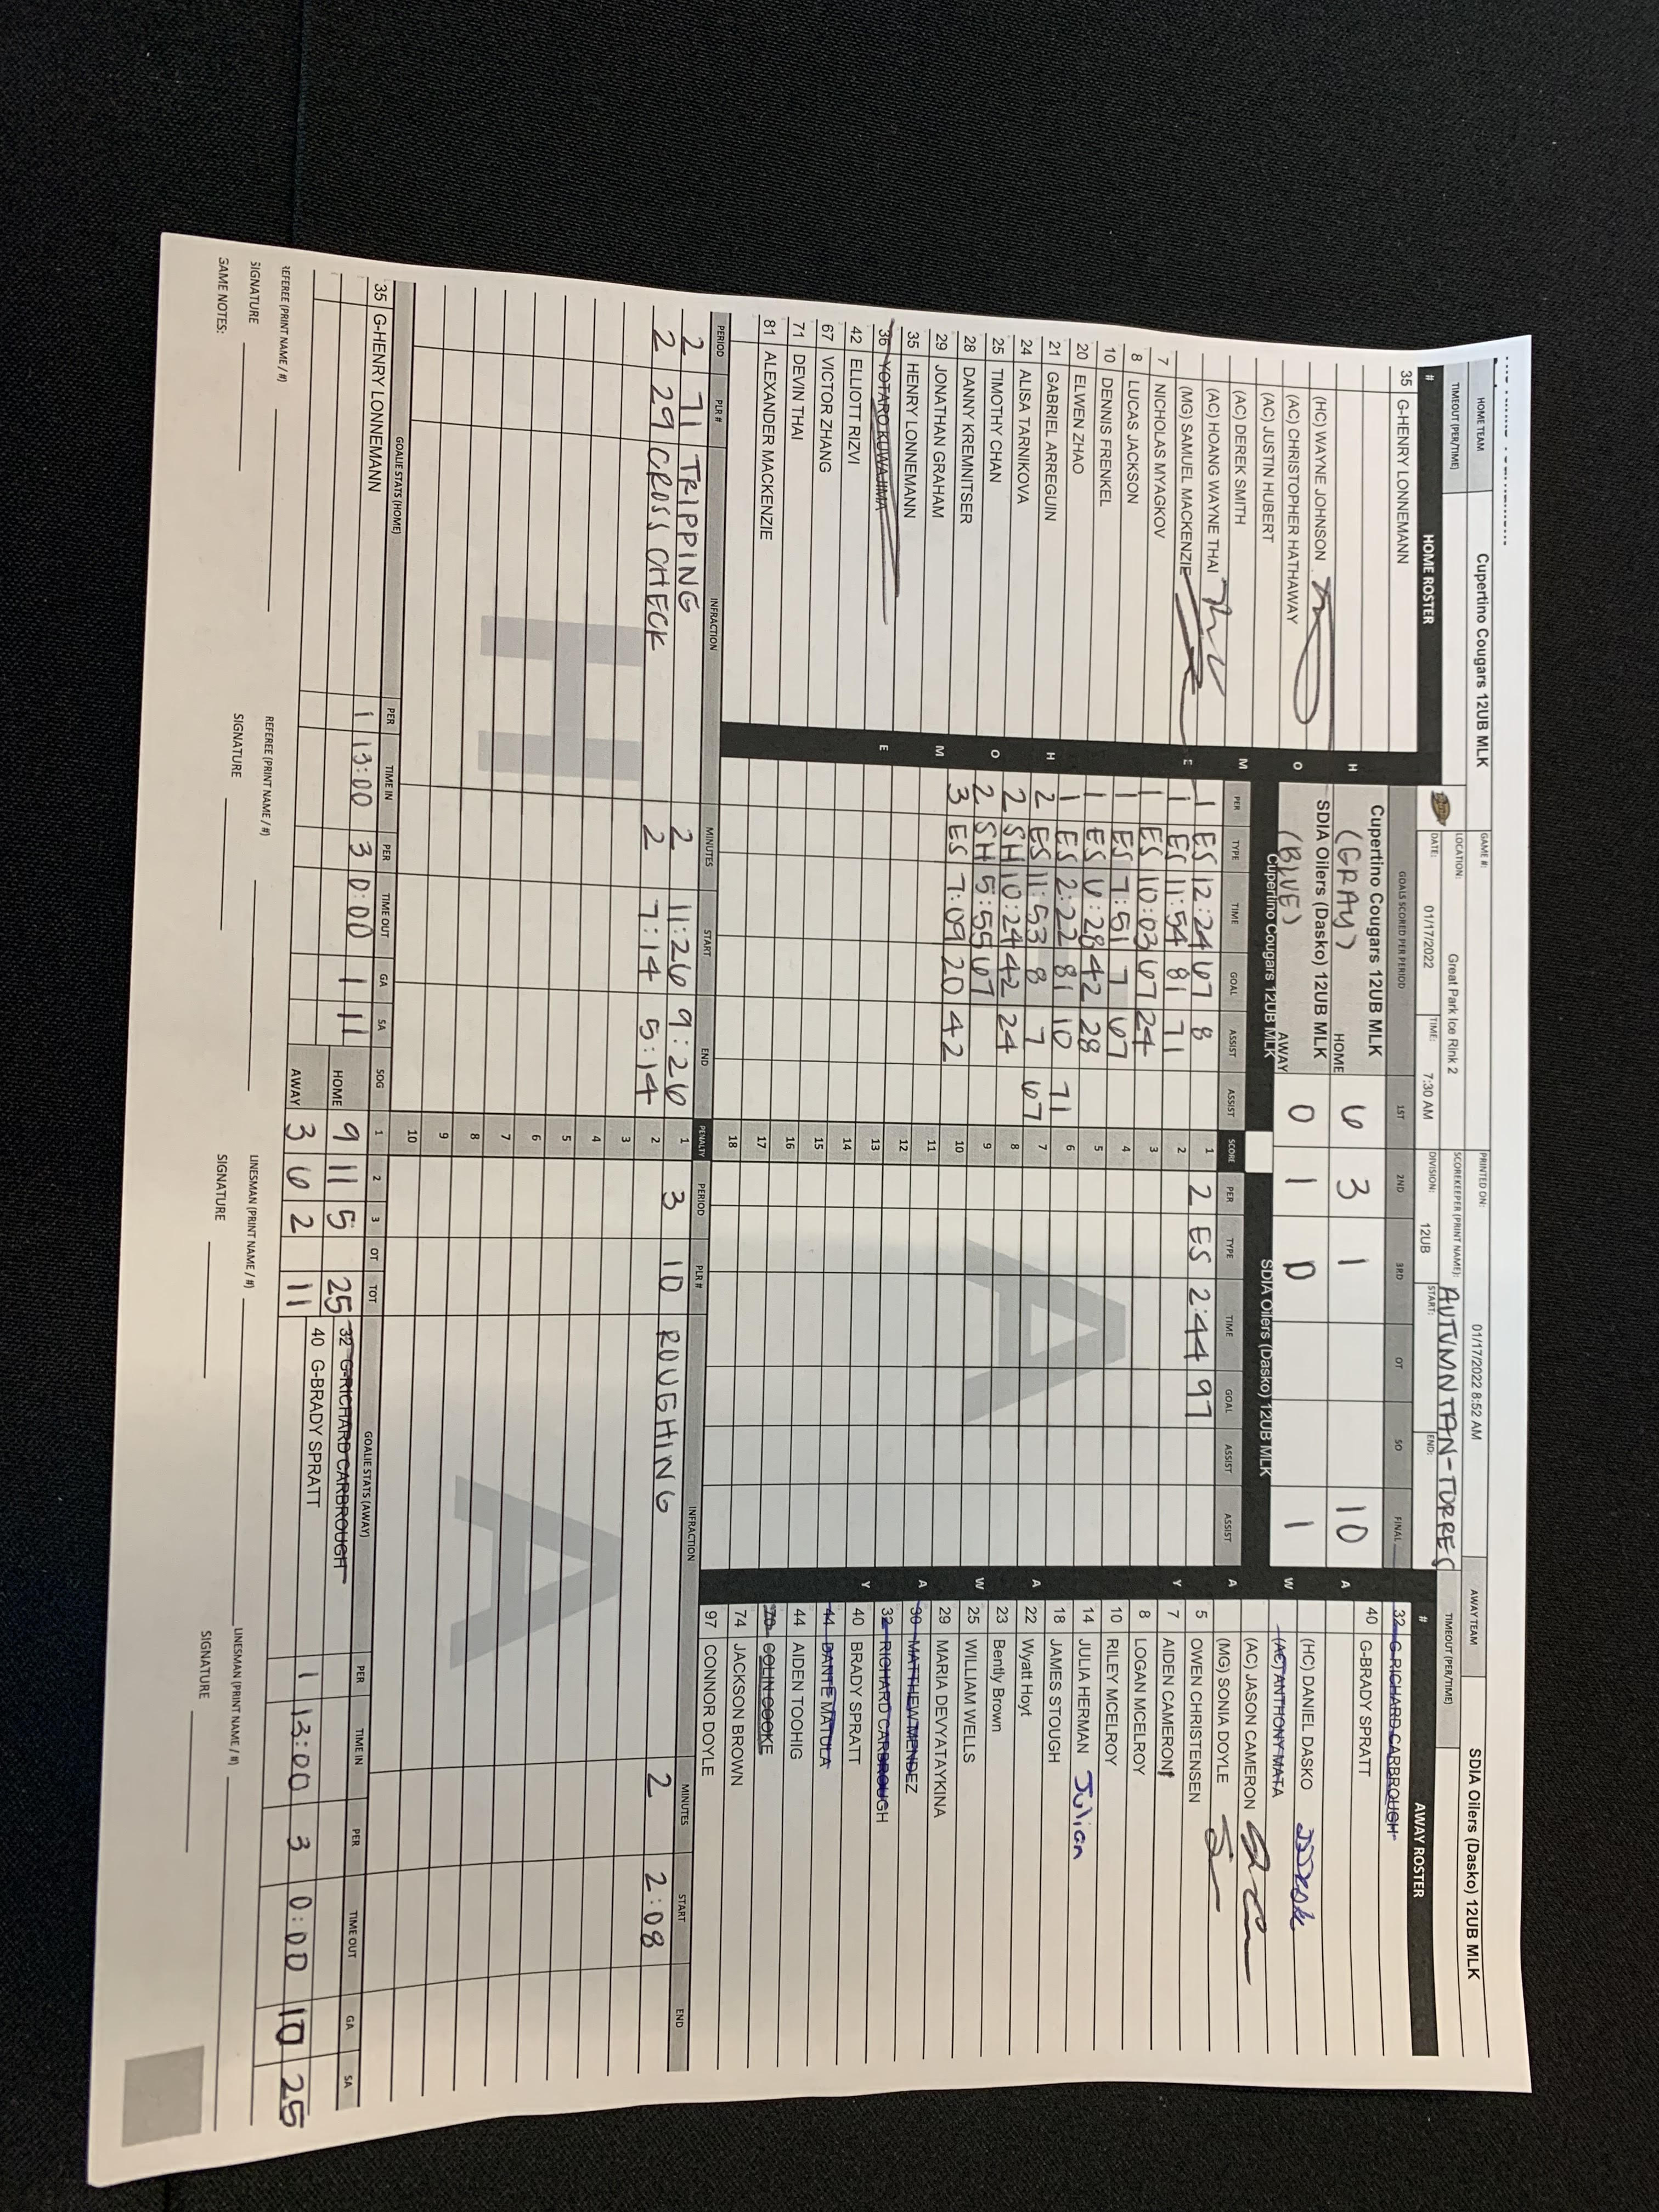 HOME TEAM Cupertino Cougars 12UB MLK GAME #: PRINTED ON: 01/17/2022 8:52 AM AWAY TEAM SDIA Oilers (Dasko) 12UB MLK
TIMEOUT (PER/TIME) LOCATION: Great Park Ice Rink 2 SCOREKEEPER (PRINT NAME): AUTUMN TAN-TORRES TIMEOUT (PER/TIME)
DATE: 01/17/2022 TIME: 7:30 AM DIVISION: 12UB START: END:
# HOME ROSTER GOALS SCORED PER PERIOD 1ST 2ND 3RD OT SO FINAL # AWAY ROSTER
35 G-HENRY LONNEMANN
H O M E
Cupertino Cougars 12UB MLK
(GRAY) HOME 6 3 1 10
SDIA Oilers (Dasko) 12UB MLK
(BLUE) AWAY 0 1 0 1
A W A Y
32 G-RICHARD CARBROUGH
40 G-BRADY SPRATT
(HC) WAYNE JOHNSON
(AC) CHRISTOPHER HATHAWAY
(AC) JUSTIN HUBERT
(AC) DEREK SMITH
(AC) HOANG WAYNE THAI
(MG) SAMUEL MACKENZIE
7 NICHOLAS MYAGKOV
8 LUCAS JACKSON
10 DENNIS FRENKEL
20 ELWEN ZHAO
21 GABRIEL ARREGUIN
24 ALISA TARNIKOVA
25 TIMOTHY CHAN
28 DANNY KREMNITSER
29 JONATHAN GRAHAM
35 HENRY LONNEMANN
36 YOTARO KUWAJIMA
42 ELLIOTT RIZVI
67 VICTOR ZHANG
71 DEVIN THAI
81 ALEXANDER MACKENZIE
Cupertino Cougars 12UB MLK SDIA Oilers (Dasko) 12UB MLK
PER TYPE TIME GOAL ASSIST ASSIST SCORE PER TYPE TIME GOAL ASSIST ASSIST
1 ES 12:24 67 8 1 2 ES 2:44 97
1 ES 11:54 81 71 2
1 ES 10:03 67 24 3
1 ES 7:51 7 67 4
1 ES 6:28 42 28 5
1 ES 2:22 81 10 71 6
2 ES 11:53 8 7 67 7
2 SH 10:24 42 24 8
2 SH 5:55 67 9
3 ES 7:09 20 42 10
11
12
13
14
15
16
17
18
H O M E
A W A Y
(HC) DANIEL DASKO
(AC) ANTHONY MATA
(AC) JASON CAMERON
(MG) SONIA DOYLE
5 OWEN CHRISTENSEN
7 AIDEN CAMERON
8 LOGAN MCELROY
10 RILEY MCELROY
14 JULIA HERMAN Julian
18 JAMES STOUGH
22 Wyatt Hoyt
23 Bently Brown
25 WILLIAM WELLS
29 MARIA DEVYATAYKINA
30 MATTHEW MENDEZ
32 RICHARD CARBROUGH
40 BRADY SPRATT
44 DANTE MATULA
44 AIDEN TOOHIG
70 COLIN COOKE
74 JACKSON BROWN
97 CONNOR DOYLE
PERIOD PLR # INFRACTION MINUTES START END PENALTY PERIOD PLR # INFRACTION MINUTES START END
2 71 TRIPPING 2 11:26 9:26 1 3 10 ROUGHING 2 2:08
2 29 CROSS CHECK 2 7:14 5:14 2
3
4
5
6
7
8
9
10
H A A
GOALIE STATS (HOME) PER TIME IN PER TIME OUT GA SA SOG 1 2 3 OT TOT GOALIE STATS (AWAY) PER TIME IN PER TIME OUT GA SA
35 G-HENRY LONNEMANN 1 13:00 3 0:00 1 11 HOME 9 11 5 25 32 G-RICHARD CARBROUGH
AWAY 3 6 2 11 40 G-BRADY SPRATT 1 13:00 3 0:00 10 25
REFEREE (PRINT NAME / #) REFEREE (PRINT NAME / #) LINESMAN (PRINT NAME / #) LINESMAN (PRINT NAME / #)
SIGNATURE SIGNATURE SIGNATURE SIGNATURE
GAME NOTES: